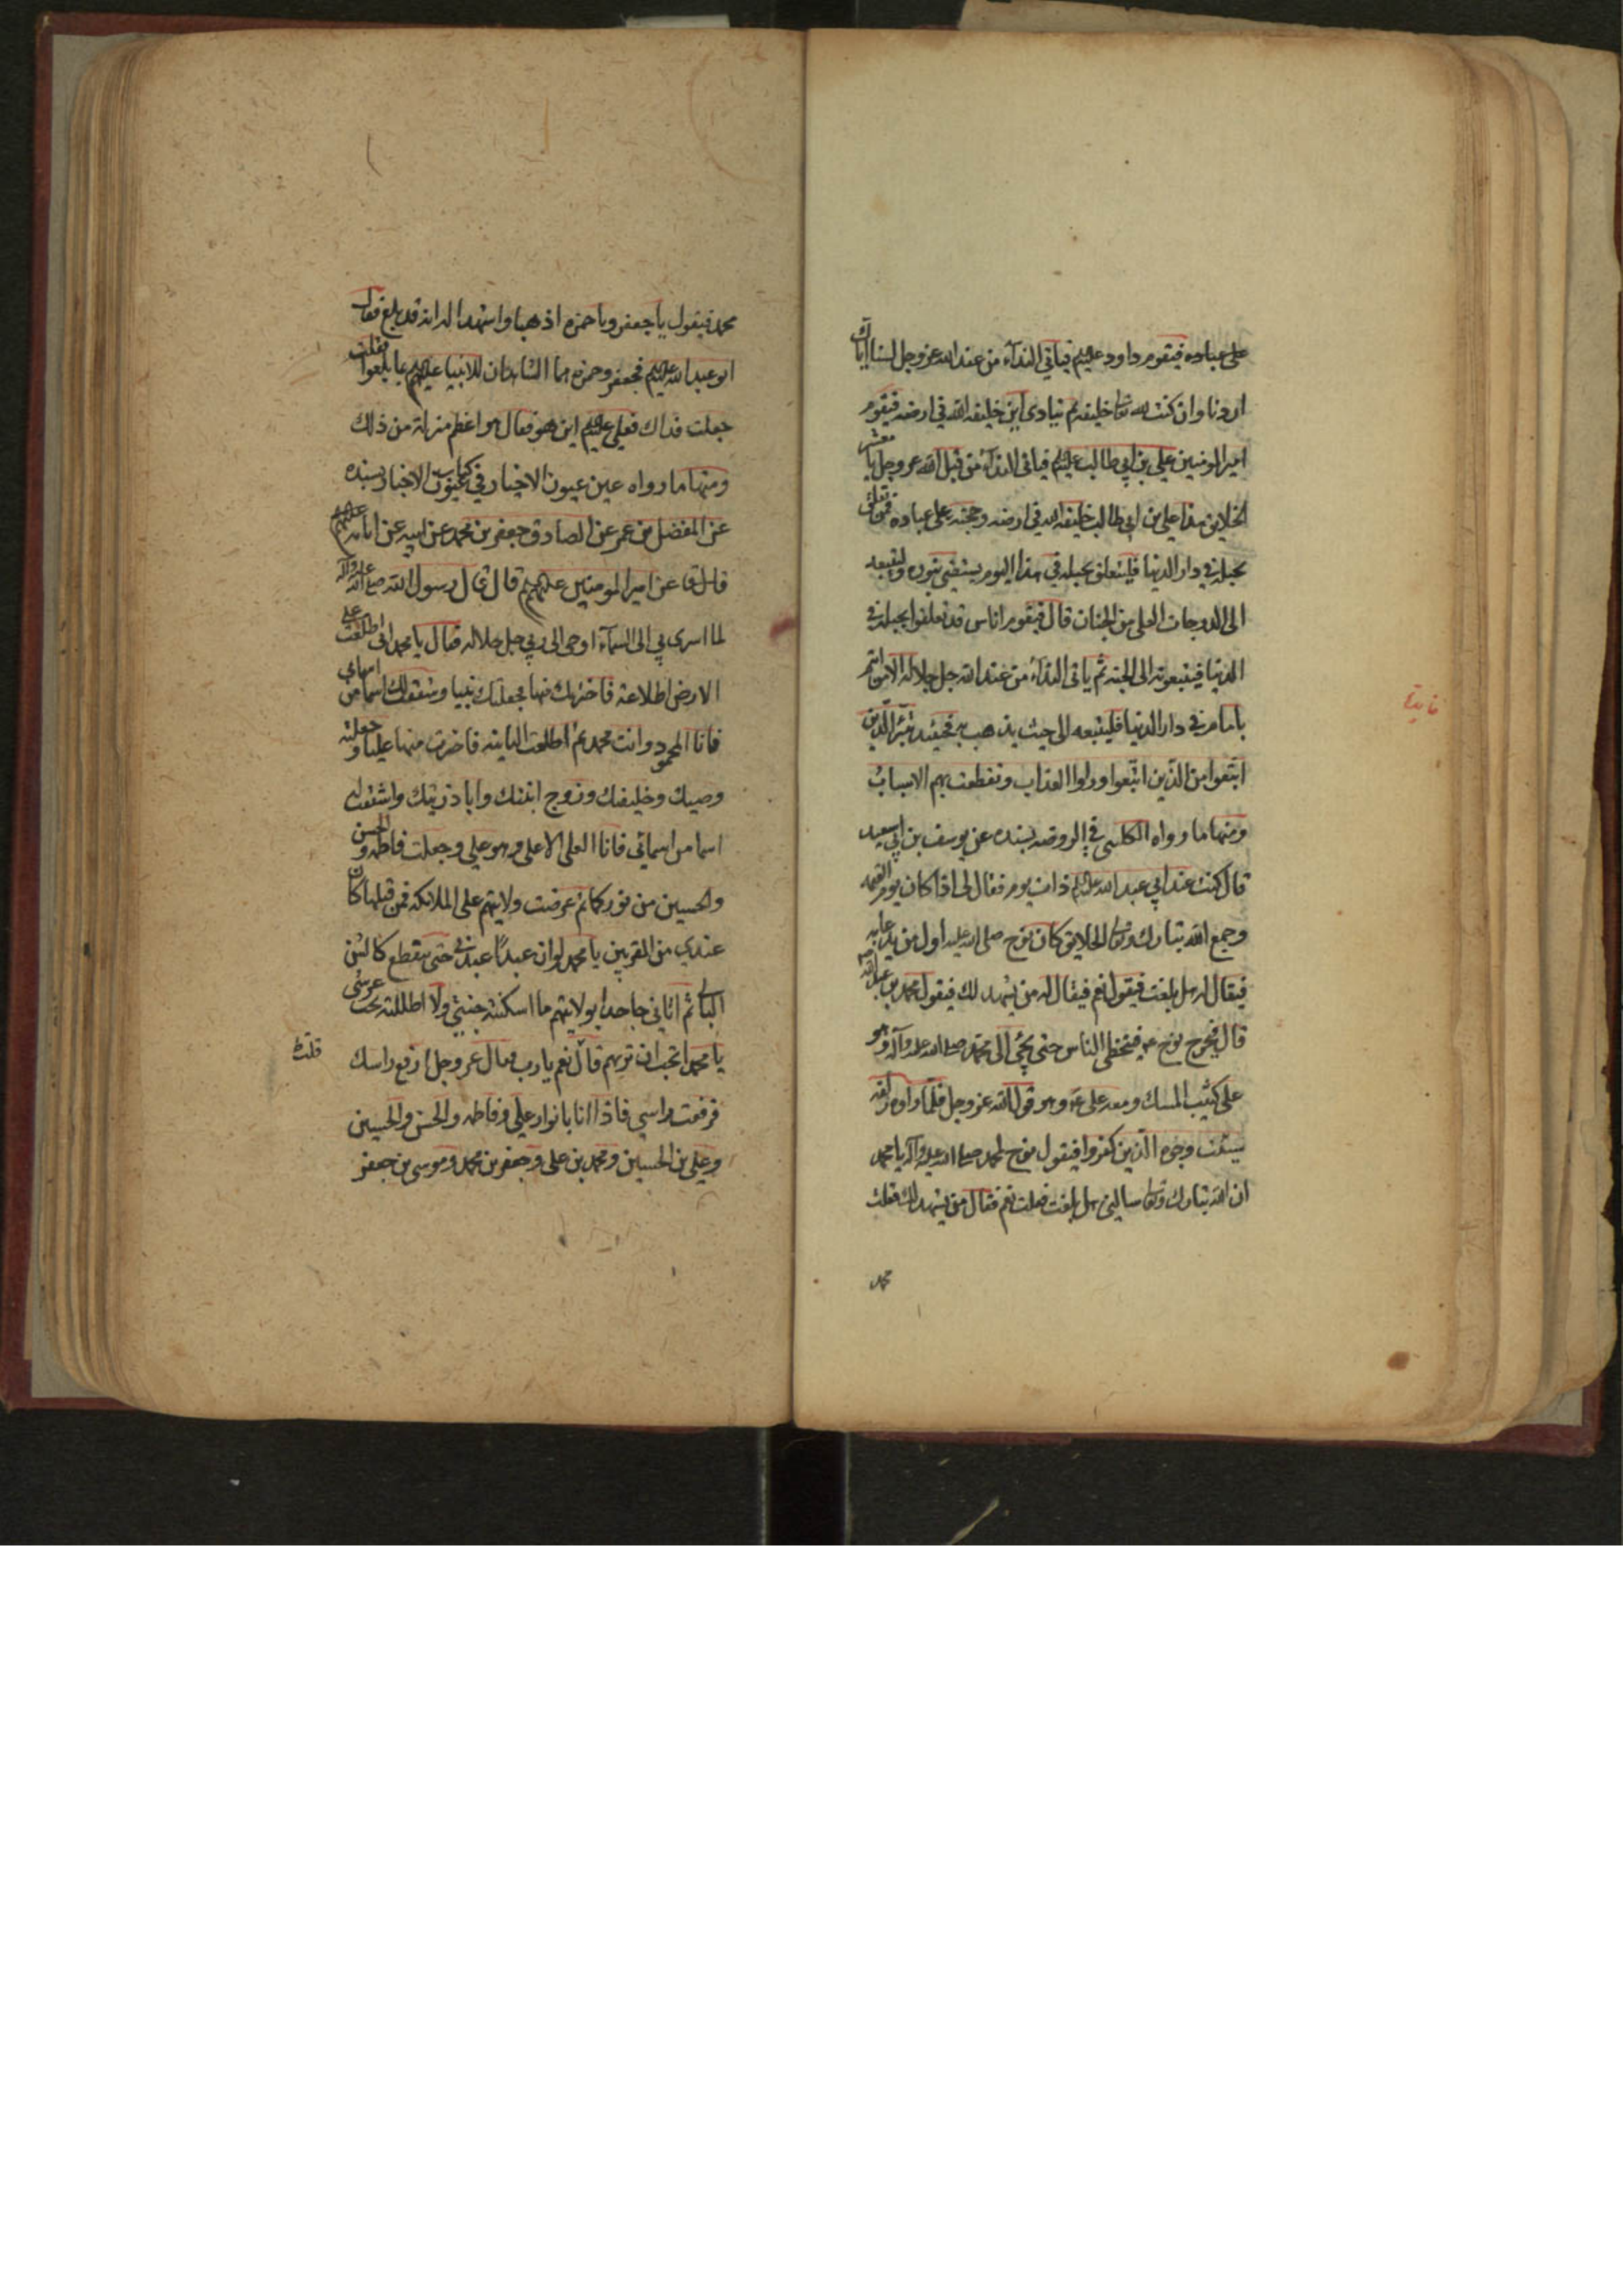 على عباده فيقوم داود عليه السلم فياتي الندآء من عند الله عز وجل لسنا اياك
اردنا وان كنت لله تعالى خليفه ثم ينادى اين خليفه الله في ارضه فيقوم
امير المومنين علي بن ابي طالب عليه السلم فياتى الندآء من قبل الله عز وجل يا معشر
الخلايق هذا علي بن ابي طالب خليفه الله في ارضه وحجته على عباده فمن تعلق
بحبله في دار الدنيا فليتعلق بحبله في هذا اليوم يستضئ بنوره وليتبعه
الى الدرجات العلى من الجنان قال فيقوم اناس قد تعلقوا بحبله في
الدنيا فيتبعونه الى الجنه ثم ياتى الندآء من عند الله جل جلاله الا من ائتم
بامام في دار الدنيا فليتبعه الى حيث يذهب به فحينئذ تبرّأ الّذين
اتبعوا من الذين اتّبعوا وراوا العذاب وتقطعت بهم الاسبابُ
ومنها ما رواه الكلينى في الروضه بسنده عن يوسف بن ابي سعيد
قال كنت عند ابي عبد الله عليه السلم ذات يوم فقال لى اذا كان يوم القيمه
وجمع الله تبارك وتعالى الخلايق كان نوح صلى الله عليه اول من يدعا به
فيقال له هل بلغت فيقول نعم فيقال له من يشهد لك فيقول محمد بن عبد الله
قال فيخرج نوح فيتخطى الناس حتى يجئ الى محمّد صلى الله عليه وآله وهو
على كثيب المسك ومعه على وهو قول الله عز وجل فلمّا راوه زلفة
سيئت وجوه الّذين كفروا فيقول نوح لمحمد صلى الله عليه وآله يا محمد
ان الله تبارك وتعالى سالني هل بلغت فقلت نعم فقال من يشهد لك فقلت
محمد
محمد فيقول يا جعفر ويا حمزه اذهبا واشهدا له انه قد بلغ فقال
ابو عبد الله عليه السلم فجعفر وحمزه هما الشاهدان للانبيا عليهم السلم بما بلغوا فقلت
جعلت فداك فعلي عليه السلم اين هو فقال هو اعظم منزلة من ذلك
ومنها ما رواه عين عيون الاخيار في كتاب عيون الاخبار بسنده
عن المفضل بن عمر عن الصادق جعفر بن محمد عن ابيه عن ابائه عليهم السلم
عن امير المومنين عليهم السلم قال قال رسول الله صلى الله عليه وآله
لما اسرى بي الى السمآء اوحى الى ربي جل جلاله فقال يا محمد اني اطلعت على
الارض اطلاعة فاخترتك منها فجعلتك نبيا وشققت لك اسما من اسمائي
فانا المحمود وانت محمد ثم اطلعت الثانيه فاخترت منها عليا وجعلته
وصيك وخليفتك وزوج ابنتك وابا ذريتك واشتققت له
اسما من اسمائي فانا العلى الاعلى وهو علي وجعلت فاطمه والحسن
والحسين من نوركما ثم عرضت ولايتهم على الملائكه فمن قبلها كان
عندي من المقربين يا محمد لو ان عبدًا عبدني حتى ينقطع كالشن
البالى ثم اتاني جاحدا بولايتهم ما اسكنته جنتي ولا اظللته تحت عرشى
يا محمد اتحب ان تريهم قال نعم يا رب فقال عز وجل ارفع راسك
قلت
فرفعت راسي فاذا انا بانوار علي وفاطمه والحسن والحسين
وعلي بن الحسين ومحمد بن على وجعفر بن محمد وموسى بن جعفر